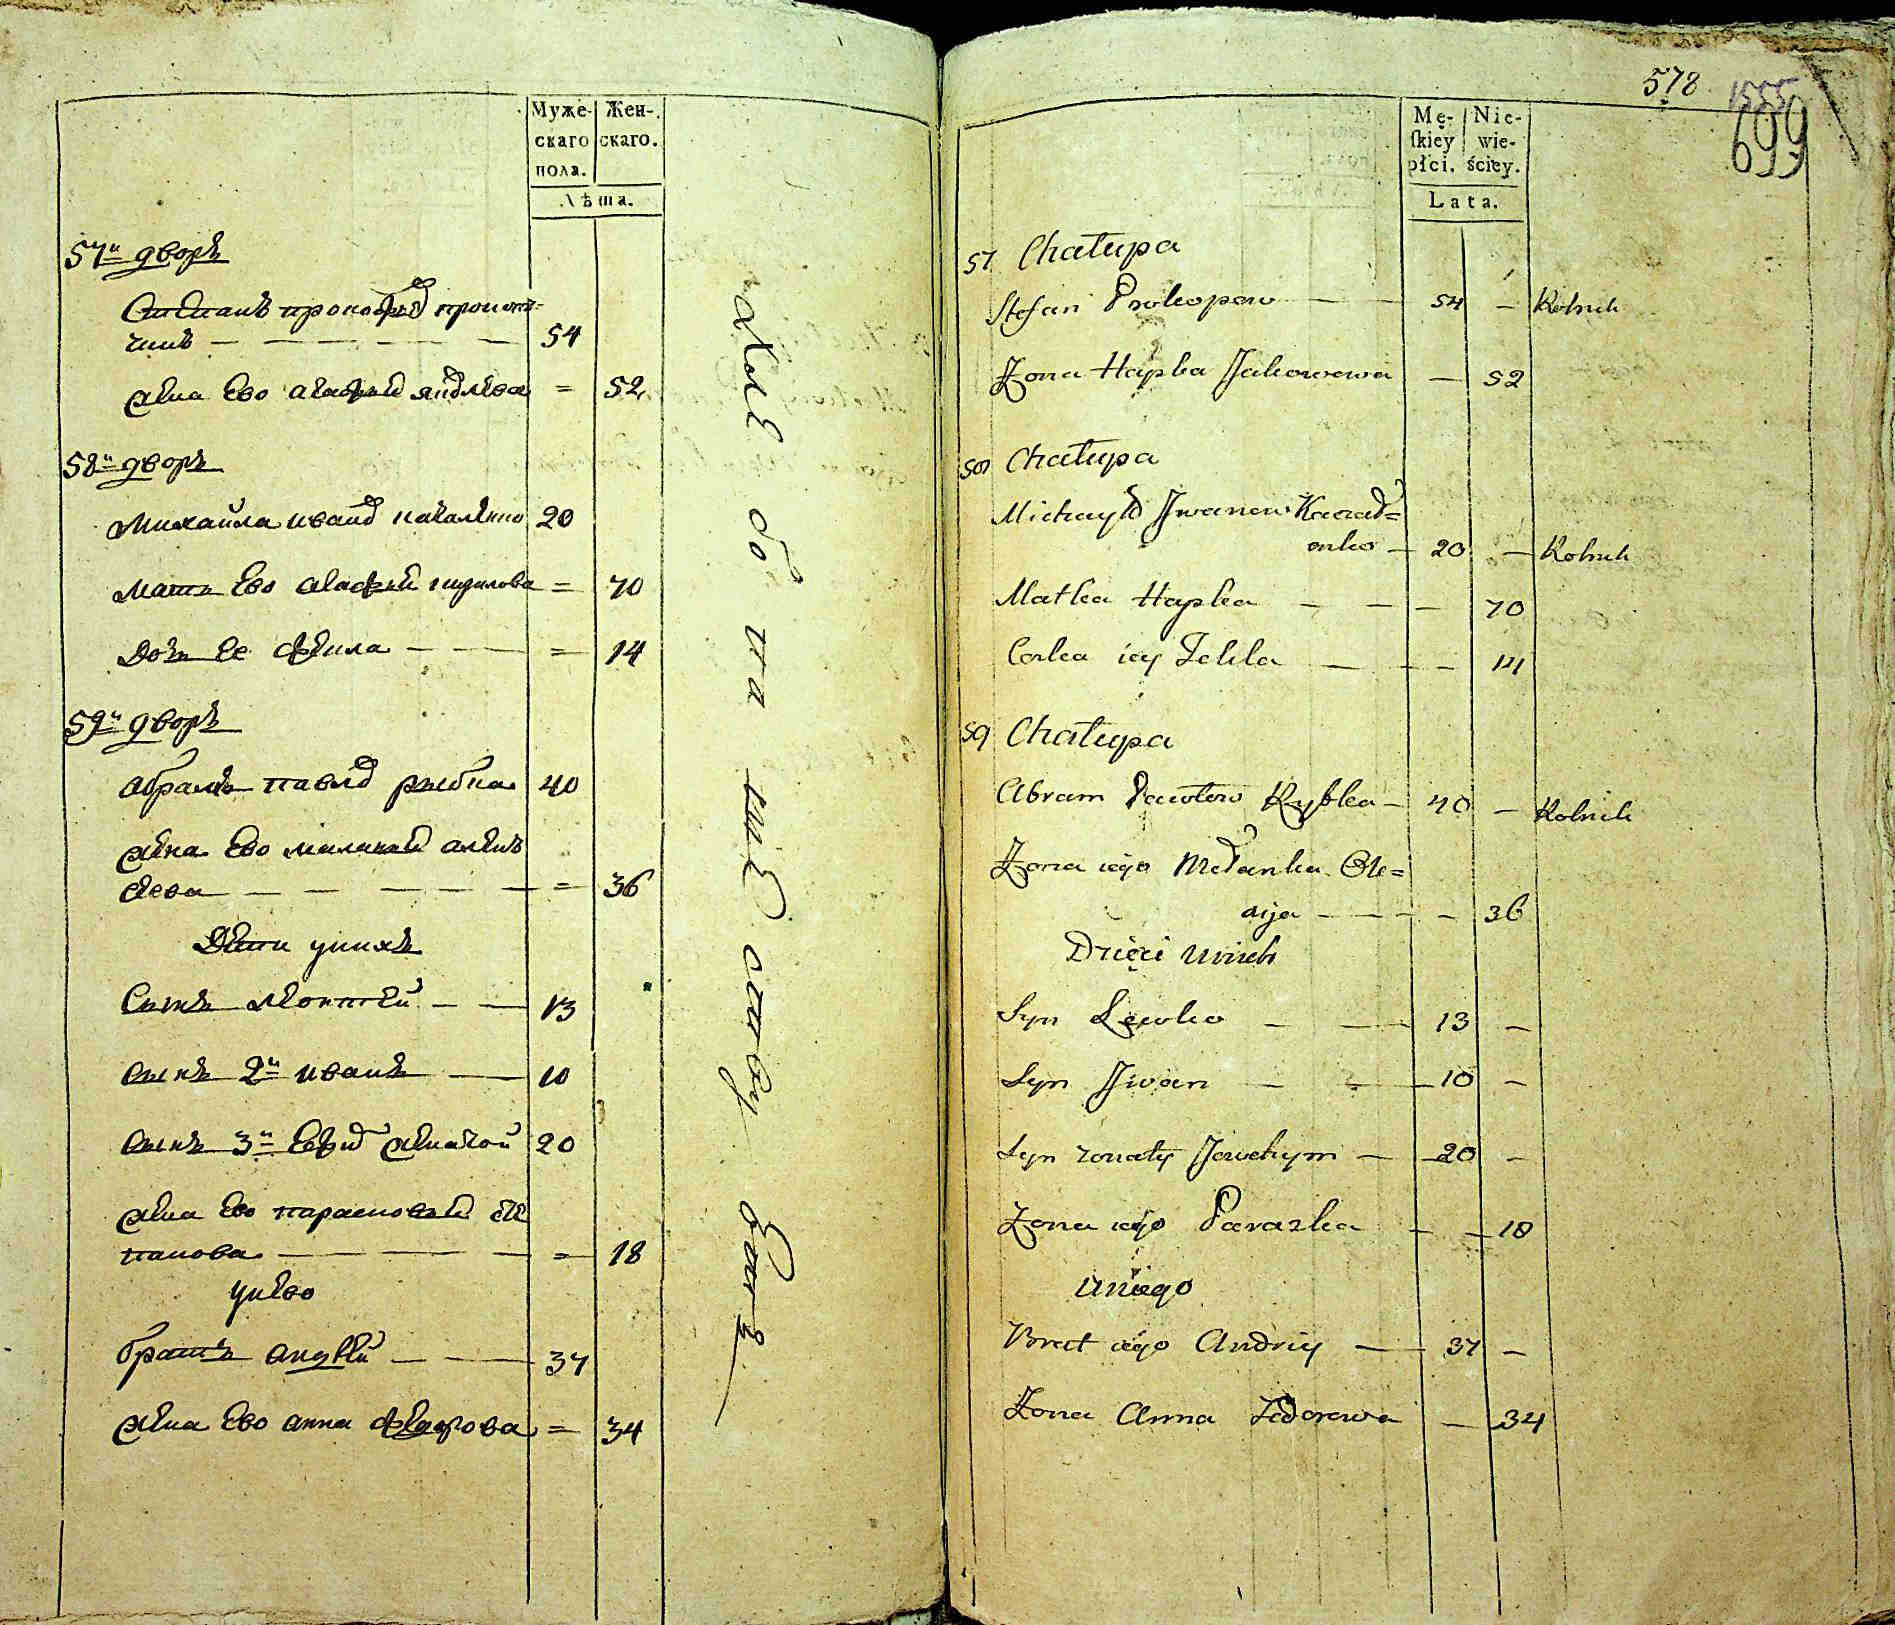 Муже-
скаго
пола.
Жен-
скаго.
Лѣта.
57й дворъ
Степанъ прокофьев прокоп-
чикъ — 54
Жена Ево агафья яковлева = 52
58й дворъ
Михайла иванов 20
Мать Ево агафья = 70
Дочь Ее фекила — = 14
59й дворъ
абрамъ павлов рыбка 40
Жена Ево маланья алекс
Еева — = 36
Дети уних
Сынъ леонтей — 13
сынъ 2й иванъ — 10
сынъ 3й Ефим Женатой 20
Жена Ево парасковья сте
панова — = 18
унево
братъ андрей — 37
Жена Ево анна федорова = 34
578
1555
699
Mę-
ſkiey
płci.
Nie-
wie-
ściey.
Lata.
57 Chałupa
Stefan Prokopow — 54 — Rolnik
Żona Hapka Jakowowa — 52
58 Chałupa
Michayło Jwanow
20 — Rolnik
Matka Hapka — 70
Corka iey Tekla — 14
59 Chałupa
Abram Pawłow Rybka — 40 — Rolnik
Żona iego Mełanka Ole=
xija — 36
Dzieci unich
Syn Lewko — 13 —
Syn Jwan — 10 —
Syn żonaty Jowchym — 20 —
Żona iego Paraska — 18
Uniego
Brat iego Andriy — 37 —
Żona Anna Fedorowa — 34